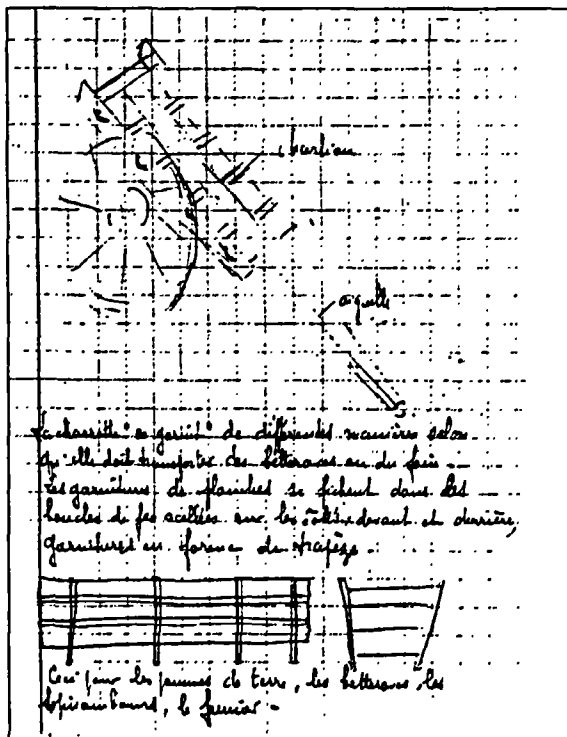 aiguille
La charrette se garnit de différentes manières selon
qu'elle doit transporter des betteraves ou du foin -
Les garnitures de planches se fichent dans des
boucles de fer scellées sur les côtés devant et derrière,
garnitures en forme de trapèze -
Ceci pour les pommes de terre, les betteraves, les
topinambours, le fumier -